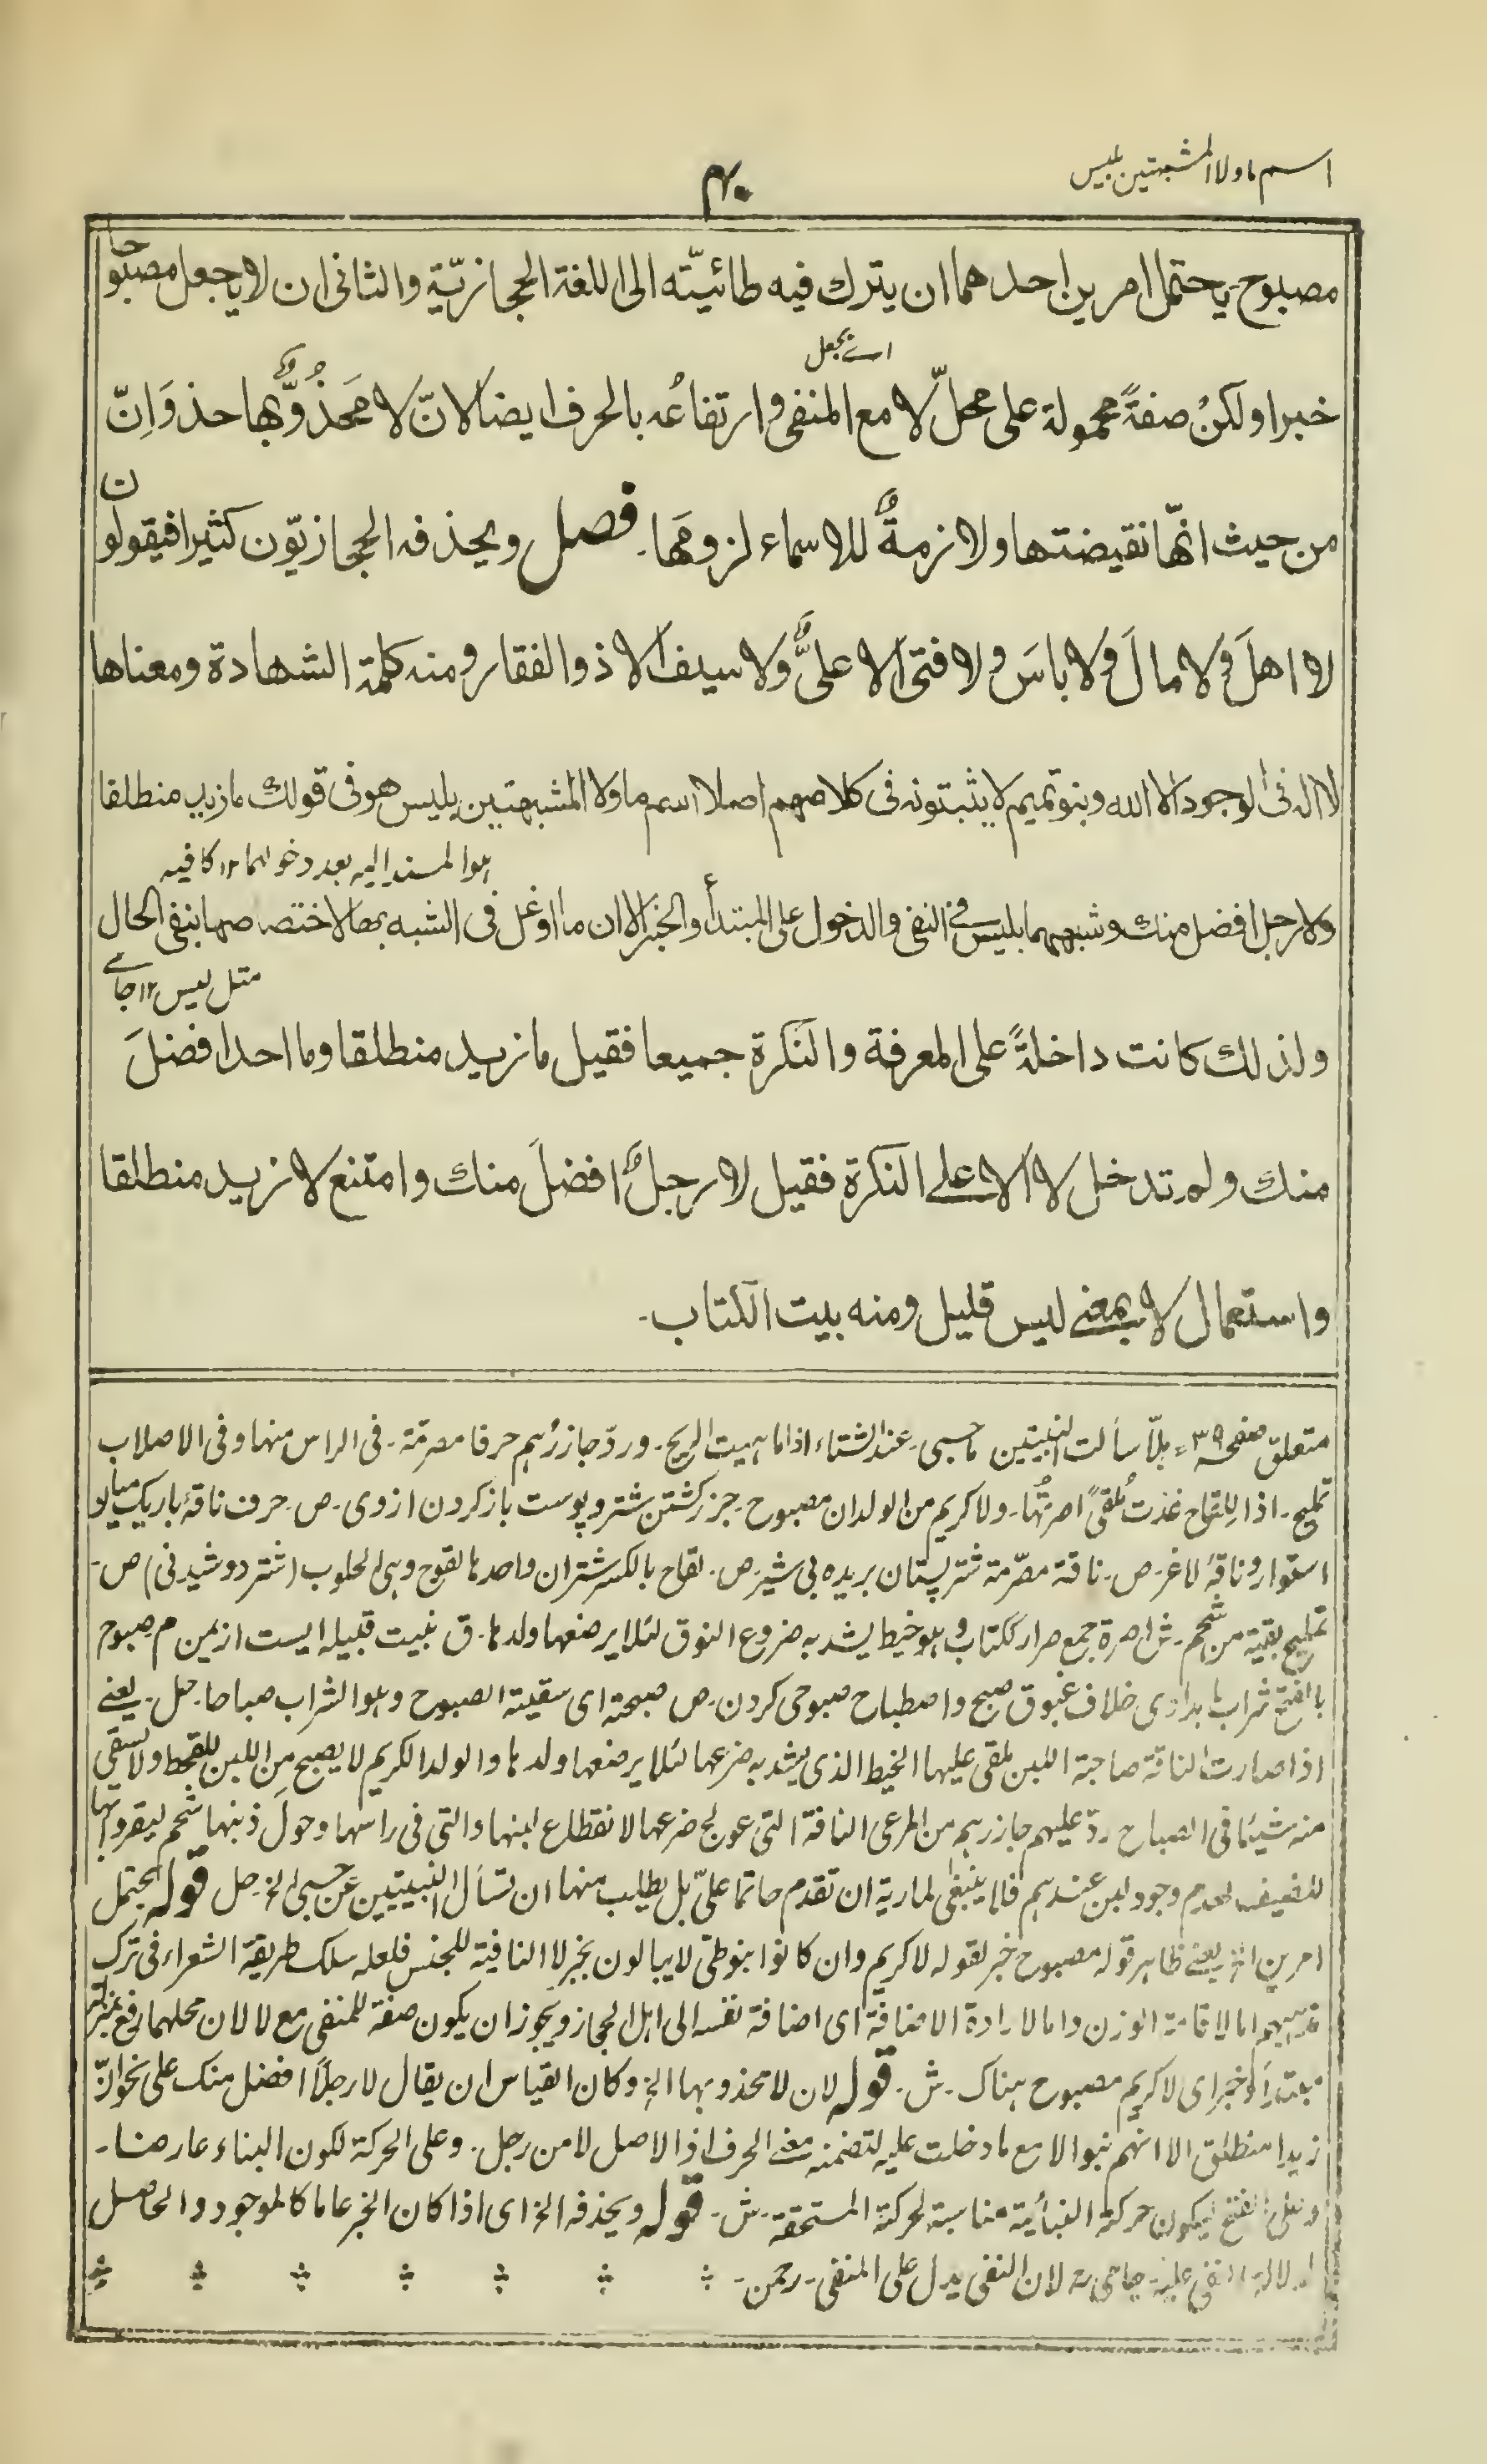 اسم ما ولا المشبهتين بليس
٤٠
مصبوح۔ يحتمل امرين احدهما ان يترك فيه طائيّته الى اللغة الحجازيّة والثانى ان لا يجعل مصبوحا
اے يجعل
خبرا ولكنْ صفةً محمولة على محلّ لا مع المنفى وارتفاعُه بالحرف ايضا لانّ لا مَحذُوٌّ بها حذوَ اِنّ
من حيث انّها نقيضتها ولازمةٌ للاسماء لزومَها۔ فصل ويحذفه الحجازيّون كثيرا فيقولون
لا اهلَ ولا مالَ ولا باسَ ولا فتى الا علىٌّ ولا سيف الا ذو الفقار ومنه كلمة الشهادة ومعناها
لا اله فى الوجود الا الله وبنو تميم لا يثبتونه فى كلامهم اصلا اسم ما ولا المشبهتين بليس هو فى قولك ما زيد منطلقا
ہو المسند اليه بعد دخولهما ١٢ كافيه
ولا رجل افضل منك وشبههما بليس فى النفى والدخول على المبتدأ والخبر الا ان ما اوغل فى الشبه بها لاختصاصها بنفى الحال
مثل ليس ١٢ جامے
ولذلك كانت داخلةً على المعرفة والنكرة جميعا فقيل ما زيد منطلقا وما احد افضلَ
منك ولم تدخل لا الا علے النكرة فقيل لا رجلٌ افضلَ منك وامتنع لا زيد منطلقا
واستعمال لا بمعنے ليس قليل ومنه بيت الكتاب۔
متعلق صفحه ٣٩ = ہلّا سألت النبيتين ما حسبى۔ عند الشتاء اذا ما ہبت الريح۔ وردّ جازرُہم حرفا مصرمة۔ فى الراس منها وفى الاصلاب
تمليح۔ اذا اللقاح غدت مُلقًى اصرتُها۔ ولا كريم من الولدان مصبوح۔ جزر كشتن شتر وپوست باز كردن ازوى۔ ص۔ حرف ناقۂ باريك ميان
استوار وناقۂ لاغر ص۔ ناقة مصرّمة شتر پستان بريده بى شير ص۔ لقاح بالكسر شتران واحدها لقوح وہى الحلوب (شتر دوشيدنى) ص۔
تمليح بقية من شحم۔ ش اصرة جمع صرار ككتاب وہو خيط يشد به ضروع النوق لئلا يرضعها ولدها۔ ق نبيت قبيله ايست از يمن م صبوح
بالفتح شراب بامدادى خلاف غبوق صبح واصطباح صبوحى كردن۔ ص صبحته اى سقيته الصبوح وہو الشراب صباحا۔ حل۔ يعنے
اذا صارت الناقة صاحبة اللبن ملقى عليها الخيط الذى يشد به ضرعها لئلا يرضعها ولدها والولد الكريم لا يصبح من اللبن للقحط ولا يسقى
منه شيئا فى الصباح ردّ عليهم جازرہم من المرعى الناقة التى عولج ضرعها لانقطاع لبنها والتى فى راسها وحول ذنبها شحم ليقروا بها
للضيف لعدم وجود لبن عندہم فلا ينبغى لمارية ان تقدم حاتما علىّ بل يطلب منها ان تسأل النبيتين عن حسبى الخ۔ حل قوله يحتمل
امرين الخ يعنے ظاہر قوله مصبوح خبر لقوله لا كريم وان كانوا بنو طى لا يبالون بخبر لا النافية للجنس فلعله سلك طريقة الشعراء فى ترك
اما لاقامة الوزن واما لارادة الاضافة اى اضافة نفسه الى اہل الحجاز ويجوز ان يكون صفة للمنفى مع لا لان محلهما رفع
مبتدأ وخبرا اى لا كريم مصبوح ہناك۔ ش۔ قوله لان لا محذو بها الخ وكان القياس ان يقال لا رجلاً افضل منك على نحو انّ
زيدا منطلق الا انهم بنوا لا مع ما دخلت عليه لتضمنه معنے الحرف اذ الاصل لا من رجل۔ وعلى الحركة لكون البناء عارضا۔
وعلى الفتح ليكون حركته البنائية مناسبة لحركته المستحقة۔ ش۔ قوله ويحذفه الخ اى اذا كان الخبر عاما كالموجود والحاصل
لدلالة النفى عليه جامى لان النفى يدل على المنفى۔ رحمن۔